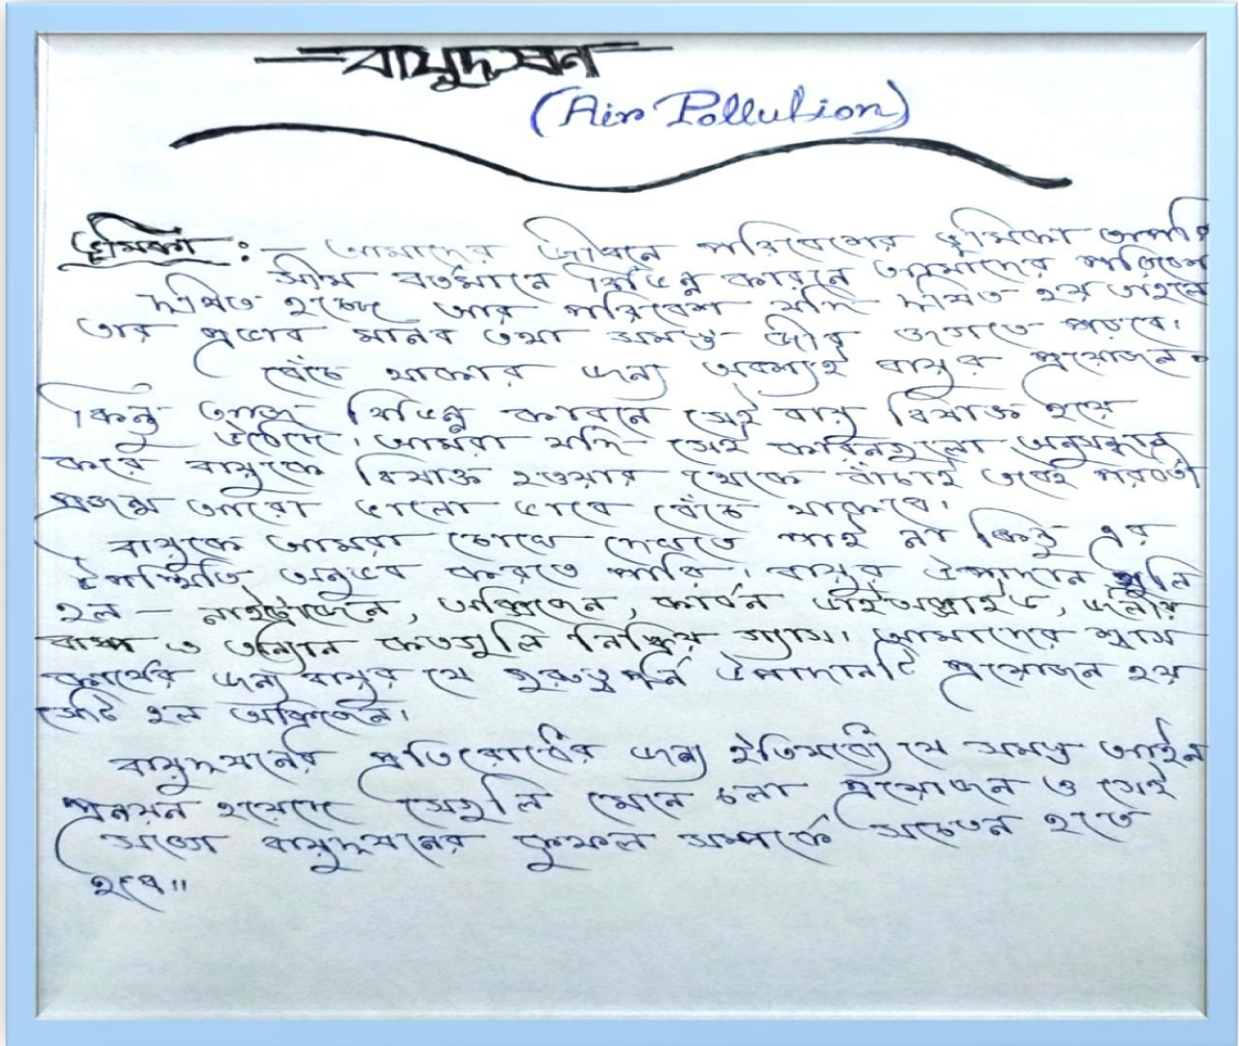 বায়ুদূষণ
(Air Pollution)
ভূমিকা :- আমাদের জীবনে পরিবেশের ভূমিকা অপরি
সীম বর্তমানে বিভিন্ন কারনে আমাদের পরিবেশ
দূষিত হচ্ছে আর পরিবেশ যদি দূষিত হয় তাহলে
তার প্রভাব মানব তথা সমস্ত জীব জগতে পরবে।
বেঁচে থাকার জন্য অবশ্যই বায়ুর প্রয়োজন।
কিন্তু আজ বিভিন্ন কারনে সেই বায়ু বিষাক্ত হয়ে
উঠেছে। আমরা যদি সেই কারনগুলো অনুসন্ধান
করে বায়ুকে বিষাক্ত হওয়ার থেকে বাঁচাই তবেই পরবর্তী
প্রজন্ম আরো ভালো ভাবে বেঁচে থাকবে।
বায়ুকে আমরা চোখে দেখতে পাই না কিন্তু এর
উপস্থিতি অনুভব করতে পারি। বায়ুর উপাদান গুলি
হল - নাইট্রোজেন, অক্সিজেন, কার্বন ডাইঅক্সাইড, জলীয়
বাষ্প ও অন্যান কতগুলি নিষ্ক্রিয় গ্যাস। আমাদের শ্বাস
কার্যের জন্য বায়ুর যে গুরুত্বপূর্ন উপাদানটি প্রয়োজন হয়
সেটি হল অক্সিজেন।
বায়ুদূষনের প্রতিরোধের জন্য ইতিমধ্যে যে সমস্ত আইন
প্রনয়ন হয়েছে সেগুলি মেনে চলা প্রয়োজন ও সেই
সাথে বায়ুদূষনের কুফল সম্পর্কে সচেতন হতে
হবে॥